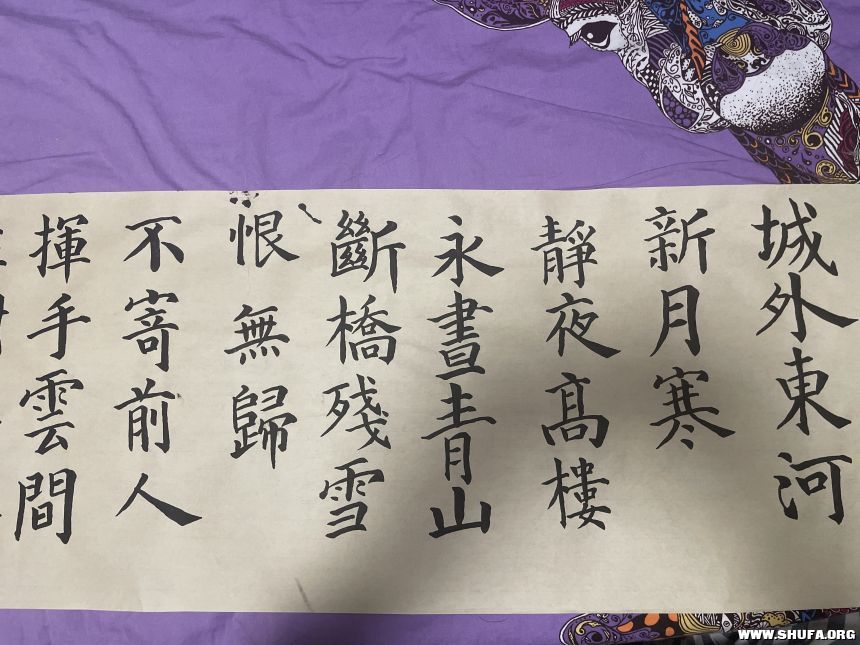 城外東河
新月寒
靜夜髙樓
永晝青山
斷橋殘雪
恨無歸
不寄前人
揮手雲間
WWW.SHUFA.ORG